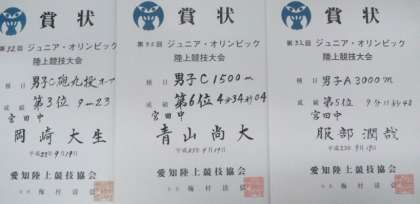 賞状
第32回 ジュニア・オリンピック
陸上競技大会
種目 男子C砲丸投
成績 第3位 9-23
宮田中
岡崎大生
平成23年9月19日
愛知陸上競技協会
賞状
第32回 ジュニア・オリンピック
陸上競技大会
種目 男子C1500m
成績 第6位 4分34秒04
宮田中
青山尚大
平成23年9月19日
愛知陸上競技協会
賞状
第32回 ジュニア・オリンピック
陸上競技大会
種目 男子A3000m
成績 第5位
宮田中
服部潤哉
平成23年9月19日
愛知陸上競技協会